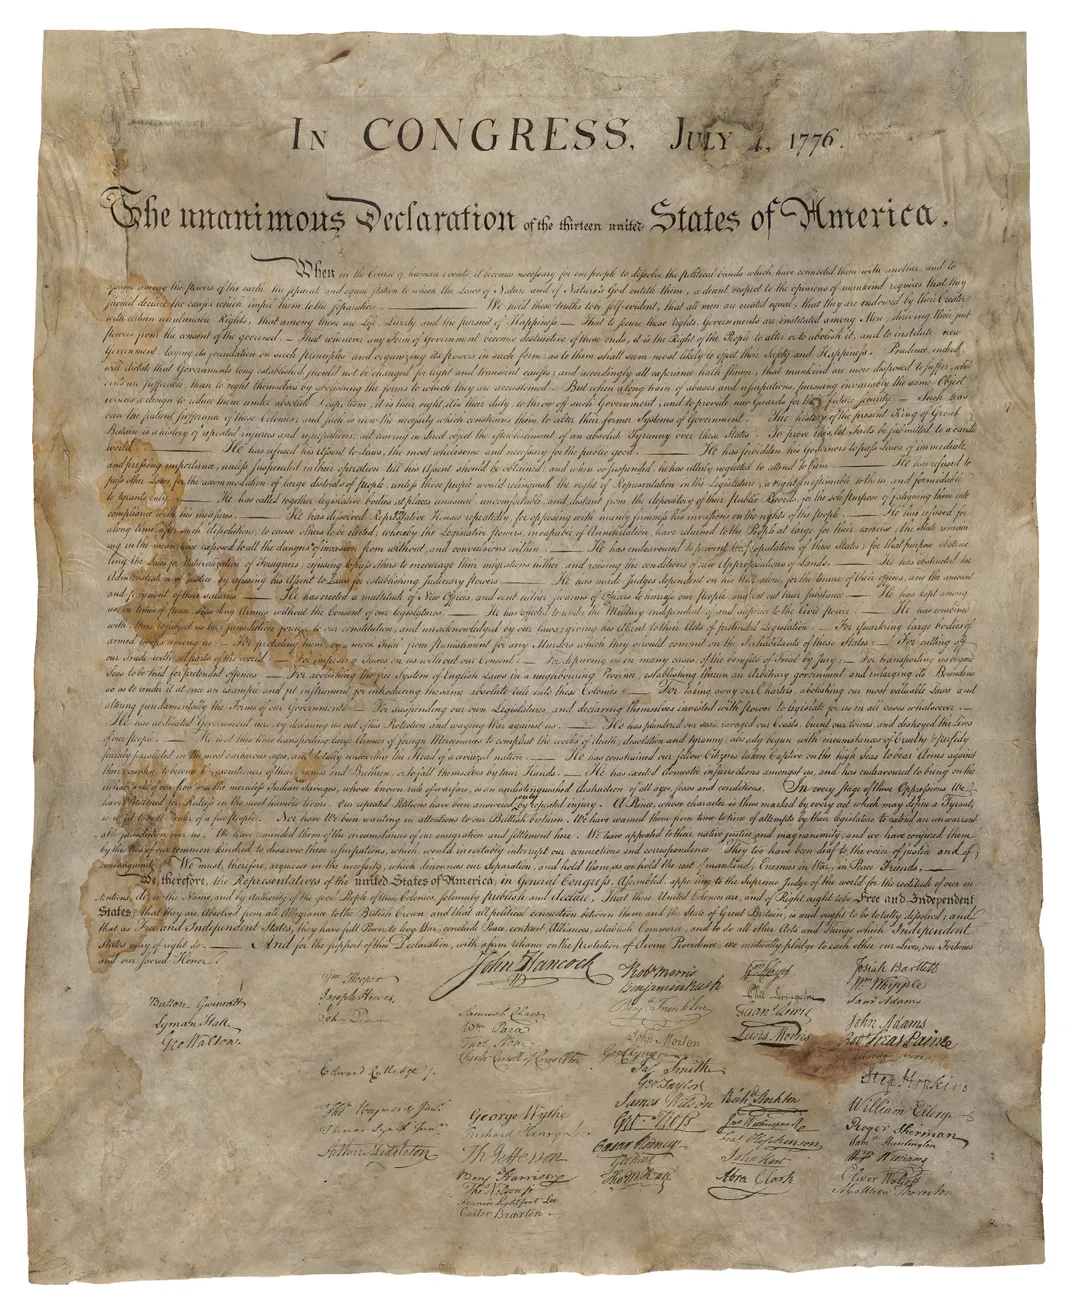 IN CONGRESS, JULY 4, 1776.
The unanimous Declaration of the thirteen united States of America.
When in the Course of human events it becomes necessary for one people to dissolve the political bands which have connected them with another, and to
assume among the powers of the earth, the separate and equal station to which the Laws of Nature and of Nature's God entitle them, a decent respect to the opinions of mankind requires that they
should declare the causes which impel them to the separation. — We hold these truths to be self-evident, that all men are created equal, that they are endowed by their Creator
with certain unalienable Rights, that among these are Life, Liberty and the pursuit of Happiness — That to secure these rights, Governments are instituted among Men, deriving their just
powers from the consent of the governed, — That whenever any Form of Government becomes destructive of these ends, it is the Right of the People to alter or to abolish it, and to institute new
Government, laying its foundation on such principles and organizing its powers in such form, as to them shall seem most likely to effect their Safety and Happiness. Prudence, indeed,
will dictate that Governments long established should not be changed for light and transient causes; and accordingly all experience hath shewn, that mankind are more disposed to suffer, while
evils are sufferable, than to right themselves by abolishing the forms to which they are accustomed. But when a long train of abuses and usurpations, pursuing invariably the same Object
evinces a design to reduce them under absolute Despotism, it is their right, it is their duty, to throw off such Government, and to provide new Guards for their future security. — Such has
been the patient sufferance of these Colonies; and such is now the necessity which constrains them to alter their former Systems of Government. The history of the present King of Great
Britain is a history of repeated injuries and usurpations, all having in direct object the establishment of an absolute Tyranny over these States. To prove this, let Facts be submitted to a candid
world. — He has refused his Assent to Laws, the most wholesome and necessary for the public good. — He has forbidden his Governors to pass Laws of immediate
and pressing importance, unless suspended in their operation till his Assent should be obtained; and when so suspended, he has utterly neglected to attend to them. — He has refused to
pass other Laws for the accommodation of large districts of people, unless those people would relinquish the right of Representation in the Legislature, a right inestimable to them and formidable
to tyrants only. — He has called together legislative bodies at places unusual, uncomfortable, and distant from the depository of their Public Records, for the sole purpose of fatiguing them into
compliance with his measures. — He has dissolved Representative Houses repeatedly, for opposing with manly firmness his invasions on the rights of the people. — He has refused for
a long time, after such dissolutions, to cause others to be elected; whereby the Legislative powers, incapable of Annihilation, have returned to the People at large for their exercise; the State remain
ing in the mean time exposed to all the dangers of invasion from without, and convulsions within. — He has endeavoured to prevent the population of these States; for that purpose obstruc
ting the Laws for Naturalization of Foreigners; refusing to pass others to encourage their migrations hither, and raising the conditions of new Appropriations of Lands. — He has obstructed the
Administration of Justice, by refusing his Assent to Laws for establishing Judiciary powers. — He has made Judges dependent on his Will alone, for the tenure of their offices, and the amount
and payment of their salaries. — He has erected a multitude of New Offices, and sent hither swarms of Officers to harrass our people, and eat out their substance. — He has kept among
us, in times of peace, Standing Armies without the Consent of our legislatures. — He has affected to render the Military independent of and superior to the Civil power. — He has combined
with others to subject us to a jurisdiction foreign to our constitution, and unacknowledged by our laws; giving his Assent to their Acts of pretended Legislation: — For Quartering large bodies of
armed troops among us: — For protecting them, by a mock Trial, from punishment for any Murders which they should commit on the Inhabitants of these States: — For cutting off
our Trade with all parts of the world: — For imposing Taxes on us without our Consent: — For depriving us in many cases, of the benefits of Trial by Jury: — For transporting us beyond
Seas to be tried for pretended offences — For abolishing the free System of English Laws in a neighbouring Province, establishing therein an Arbitrary government, and enlarging its Boundaries
so as to render it at once an example and fit instrument for introducing the same absolute rule into these Colonies: — For taking away our Charters, abolishing our most valuable Laws, and
altering fundamentally the Forms of our Governments: — For suspending our own Legislatures, and declaring themselves invested with power to legislate for us in all cases whatsoever. —
He has abdicated Government here, by declaring us out of his Protection and waging War against us. — He has plundered our seas, ravaged our Coasts, burnt our towns, and destroyed the Lives
of our people. — He is at this time transporting large Armies of foreign Mercenaries to compleat the works of death, desolation and tyranny, already begun with circumstances of Cruelty & perfidy
scarcely paralleled in the most barbarous ages, and totally unworthy the Head of a civilized nation. — He has constrained our fellow Citizens taken Captive on the high Seas to bear Arms against
their Country, to become the executioners of their friends and Brethren, or to fall themselves by their Hands. — He has excited domestic insurrections amongst us, and has endeavoured to bring on the
inhabitants of our frontiers, the merciless Indian Savages, whose known rule of warfare, is an undistinguished destruction of all ages, sexes and conditions. In every stage of these Oppressions We
have Petitioned for Redress in the most humble terms: Our repeated Petitions have been answered only by repeated injury. A Prince, whose character is thus marked by every act which may define a Tyrant,
is unfit to be the ruler of a free people. Nor have We been wanting in attentions to our Brittish brethren. We have warned them from time to time of attempts by their legislature to extend an unwarrant
able jurisdiction over us. We have reminded them of the circumstances of our emigration and settlement here. We have appealed to their native justice and magnanimity, and we have conjured them
by the ties of our common kindred to disavow these usurpations, which, would inevitably interrupt our connections and correspondence. They too have been deaf to the voice of justice and of
consanguinity. We must, therefore, acquiesce in the necessity, which denounces our Separation, and hold them, as we hold the rest of mankind, Enemies in War, in Peace Friends. —
We, therefore, the Representatives of the united States of America, in General Congress, Assembled, appealing to the Supreme Judge of the world for the rectitude of our in
tentions, do, in the Name, and by Authority of the good People of these Colonies, solemnly publish and declare, That these United Colonies are, and of Right ought to be Free and Independent
States; that they are Absolved from all Allegiance to the British Crown, and that all political connection between them and the State of Great Britain, is and ought to be totally dissolved; and
that as Free and Independent States, they have full Power to levy War, conclude Peace, contract Alliances, establish Commerce, and to do all other Acts and Things which Independent
States may of right do. — And for the support of this Declaration, with a firm reliance on the protection of divine Providence, we mutually pledge to each other our Lives, our Fortunes
and our sacred Honor.
John Hancock
Button Gwinnett
Lyman Hall
Geo Walton.
Wm Hooper
Joseph Hewes,
John Penn
Edward Rutledge /.
Thos Heyward Junr.
Thomas Lynch Junr.
Arthur Middleton
Samuel Chase
Wm Paca
Thos Stone
Charles Carroll of Carrollton
George Wythe
Richard Henry Lee
Th Jefferson
Benj Harrison
Thos Nelson jr.
Francis Lightfoot Lee
Carter Braxton
Robt Morris
Benjamin Rush
Benja Franklin
John Morton
Geo Clymer
Jas Smith
Geo Taylor
James Wilson
Geo Ross
Caesar Rodney
Geo Read
Tho M:Kean
Wm Floyd
Phil. Livingston
Frans Lewis
Lewis Morris
Richd Stockton
Jno Witherspoon
Fras Hopkinson
John Hart
Abra Clark
Josiah Bartlett
Wm Whipple
Saml Adams
John Adams
Robt Treat Paine
Step. Hopkins
William Ellery
Roger Sherman
Saml Huntington
Wm Williams
Oliver Wolcott
Matthew Thornton